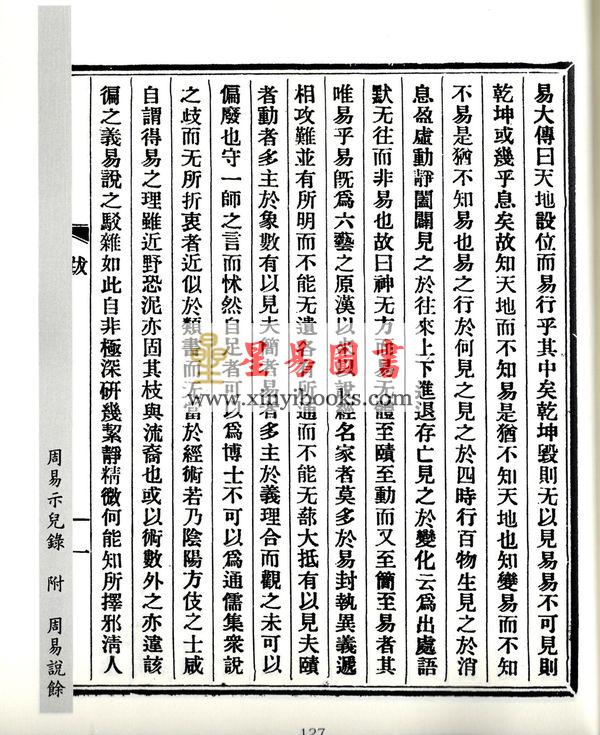 易大傳曰天地設位而易行乎其中矣乾坤毀則无以見易易不可見則
乾坤或幾乎息矣故知天地而不知易是猶不知天地也知變易而不知
不易是猶不知易也易之行於何見之見之於四時行百物生見之於消
息盈虛動靜闔闢見之於往來上下進退存亡見之於變化云爲出處語
默无往而非易也故曰神无方而易无體至賾至動而又至簡至易者其
唯易乎易旣爲六藝之原漢以來以說經名家者莫多於易封執異義遞
相攻難並有所明而不能无遺各有所通而不能无蔀大抵有以見夫賾
者動者多主於象數有以見夫簡者易者多主於義理合而觀之未可以
偏廢也守一師之言而怵然自足者可以爲博士不可以爲通儒集衆說
之歧而无所折衷者近似於類書而无當於經術若乃陰陽方伎之士咸
自謂得易之理雖近野恐泥亦固其枝與流裔也或以術數外之亦違該
徧之義易說之駁雜如此自非極深硏幾絜靜精微何能知所擇邪淸人
跋
一
周易示兒錄 附 周易說餘
星易圖書
www.xinyibooks.com
127